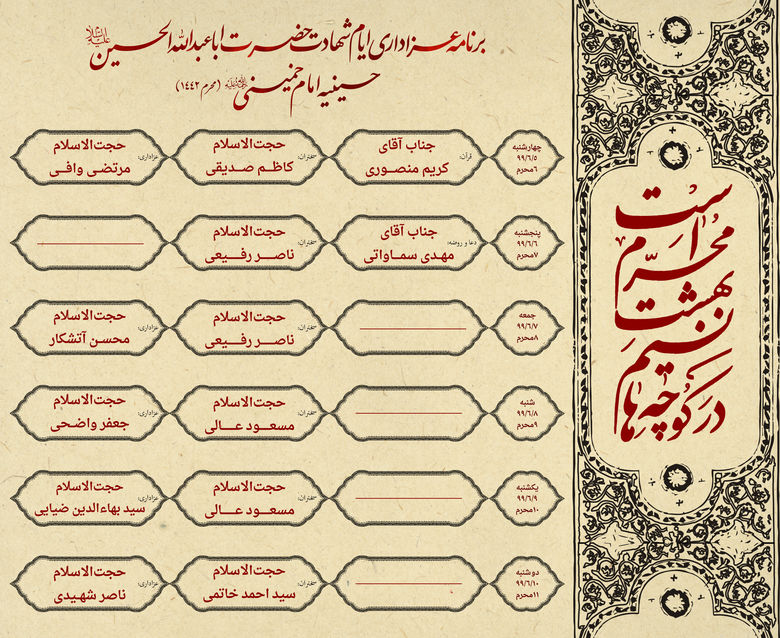 برنامه عزاداری ایام شهادت حضرت اباعبدالله الحسین علیه‌السلام
حسینیه امام خمینی (محرم ۱۴۴۲)
چهارشنبه
۹۹/۶/۵
۶محرم
قرآن:
جناب آقای
کریم منصوری
سخنران:
حجت‌الاسلام
کاظم صدیقی
عزاداری:
حجت‌الاسلام
مرتضی وافی
پنجشنبه
۹۹/۶/۶
۷محرم
دعا و روضه:
جناب آقای
مهدی سماواتی
سخنران:
حجت‌الاسلام
ناصر رفیعی
جمعه
۹۹/۶/۷
۸محرم
سخنران:
حجت‌الاسلام
ناصر رفیعی
عزاداری:
حجت‌الاسلام
محسن آتشکار
شنبه
۹۹/۶/۸
۹محرم
سخنران:
حجت‌الاسلام
مسعود عالی
عزاداری:
حجت‌الاسلام
جعفر واضحی
یکشنبه
۹۹/۶/۹
۱۰محرم
سخنران:
حجت‌الاسلام
مسعود عالی
عزاداری:
حجت‌الاسلام
سید بهاءالدین ضیایی
دوشنبه
۹۹/۶/۱۰
۱۱محرم
سخنران:
حجت‌الاسلام
سید احمد خاتمی
عزاداری:
حجت‌الاسلام
ناصر شهیدی
در کوچه‌ها
نسیم
بهشت
محرم
است